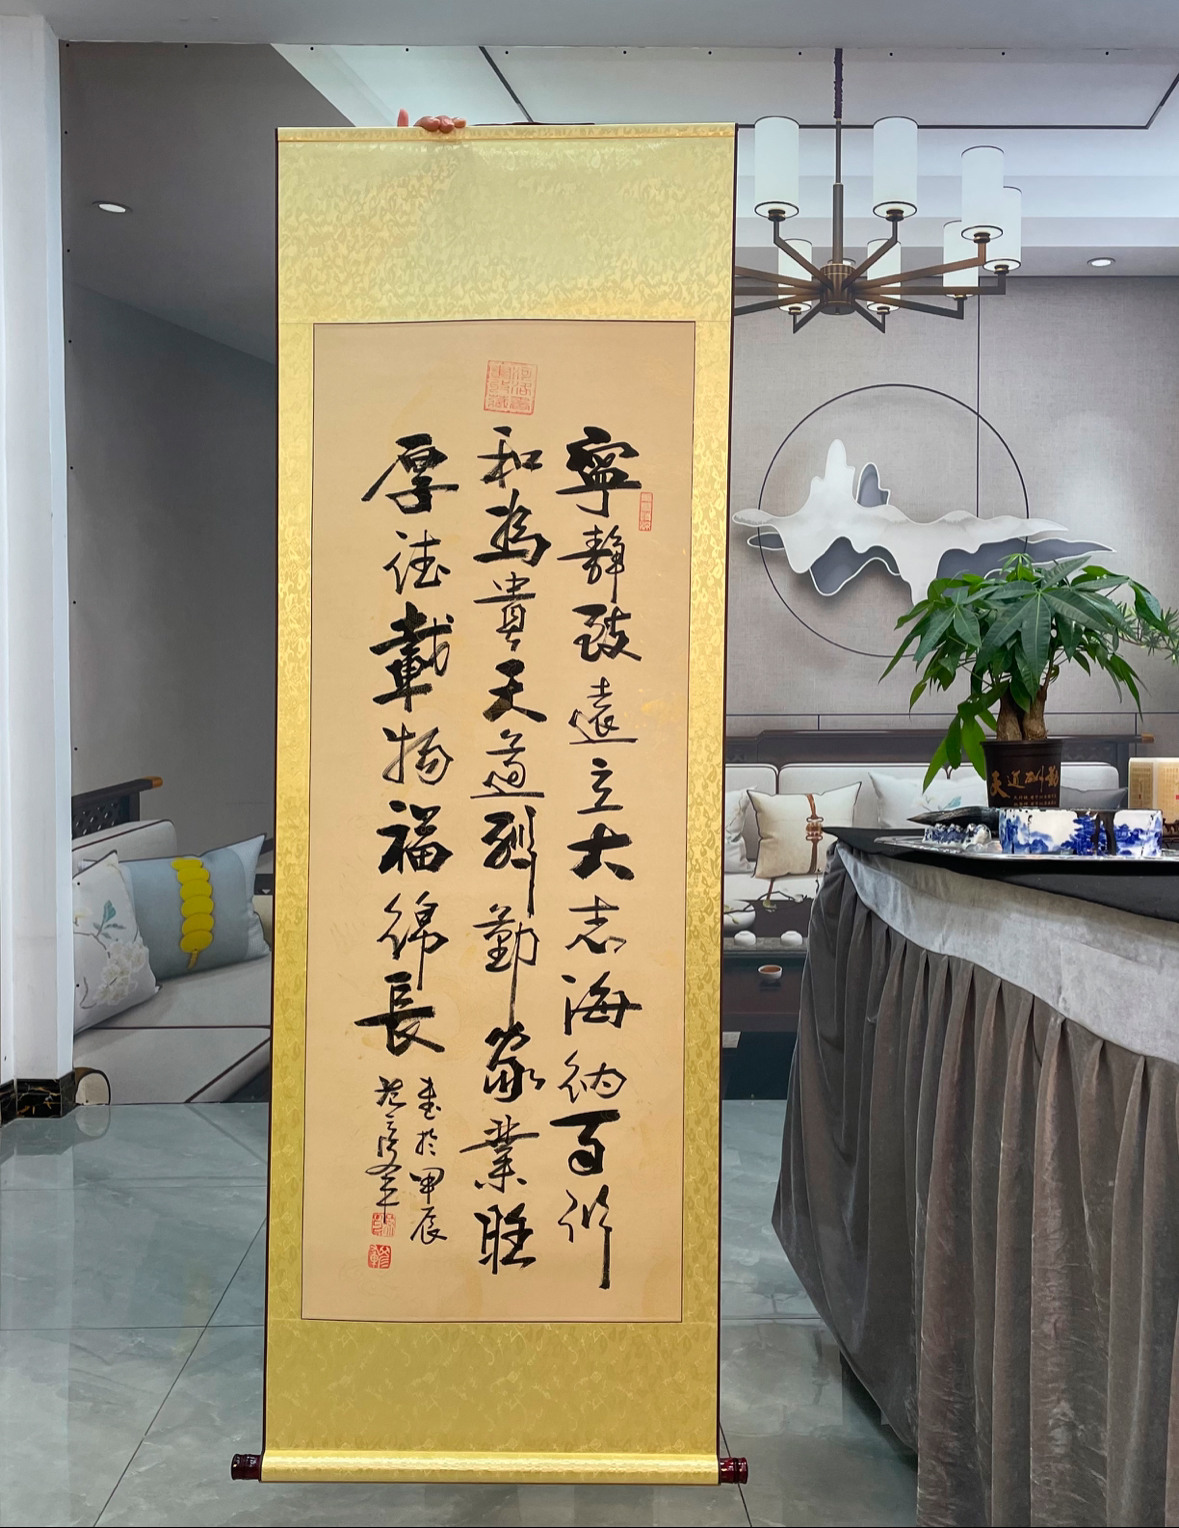 寧靜致遠立大志海納百川
和為貴天道酬勤家業旺
厚德載物福綿長
書於甲辰
天道酬勤